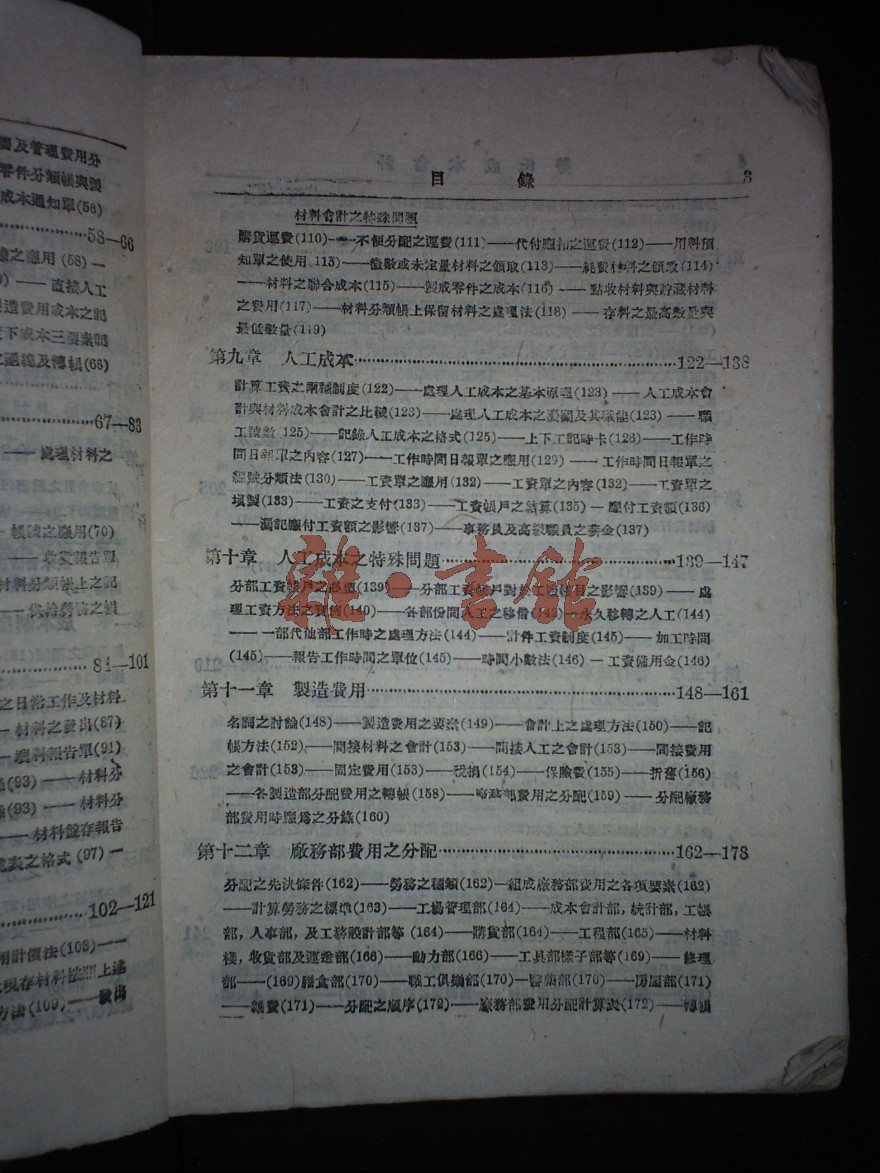 籌及管理費用分
零件分類帳與製
成本通知單(56)
58—66
之應用(58)—
直接人工
製造費用成本之記
下成本三要素記
之彙總及轉帳(66)
67—83
—— 處理材料之
帳號之應用(70)
—— 收貨報告單
材料分類帳上之記
84—101
之日常工作及材料
— 材料之發出(87)
報告單(91)
(93) —— 材料分
(93) —— 材料分
—— 材料盤存報告
之格式(97) —
102—121
用計價法(103)——
現存材料 上述
方法(109)——發出
目 錄 3
材料會計之特殊問題
購貨運費(110)——不便分配之運費(111)——代付應扣之運費(112)——用料預
知單之使用(113)——微數或未定量材料之領取(113)——耗費材料之領取(114)
——材料之聯合成本(115)——製成零件之成本(116)——點收材料與貯藏材料
之費用(117)——材料分類帳上保留材料之處理法(118)——存料之最高數量與
最低數量(119)
第九章 人工成本 122—138
計算工資之兩種制度(122)——處理人工成本之基本原理(123)——人工成本會
計與材料成本會計之比較(123)——處理人工成本之機關及其職能(123)——職
工號數(125)——記錄人工成本之格式(125)——上下工記時卡(126)——工作時
間日報單之內容(127)——工作時間日報單之應用(129)——工作時間日報單之
編號分類法(130)——工資單之應用(132)——工資單之內容(132)——工資單之
填製(133)——工資之支付(133)——工資帳戶之結算(135)—應付工資額(136)
——漏記應付工資額之影響(137)——事務員及高級職員之薪金(137)
第十章 人工成本之特殊問題 139—147
分部工資帳戶之必要(139)——分部工資帳戶對於工資帳目之影響(139)——處
理工資方法之實例(140)——各部份間人工之移借(143)——永久移轉之人工(144)
——一部代他部工作時之處理方法(144)——計件工資制度(145)——加工時間
(145)——報告工作時間之單位(145)——時間小數法(146)—工資備用金(146)
第十一章 製造費用 148—161
名詞之討論(148)——製造費用之要素(149)——會計上之處理方法(150)——記
帳方法(152)——間接材料之會計(153)——間接人工之會計(153)——間接費用
之會計(153)——固定費用(153)——稅捐(154)——保險費(155)——折舊(156)
——各製造部分配費用之轉帳(158)——廠務部費用之分配(159)——分配廠務
部費用時應爲之分錄(160)
第十二章 廠務部費用之分配 162—178
分配之先決條件(162)——勞務之種類(162)—組成廠務部費用之各項要素(162)
——計算勞務之標準(163)——工場管理部(164)——成本會計部,統計部,工帳
部,人事部,及工務設計部等(164)——購貨部(164)——工程部(165)——材料
棧,收貨部及運送部(166)——動力部(166)——工具部樣子部等(169)——修理
部——(169)膳食部(170)——職工俱樂部(170)—醫藥部(170)——房屋部(171)
——雜費(171)——分配之順序(172)——廠務部費用分配計算表(172)——轉帳
雜·書館